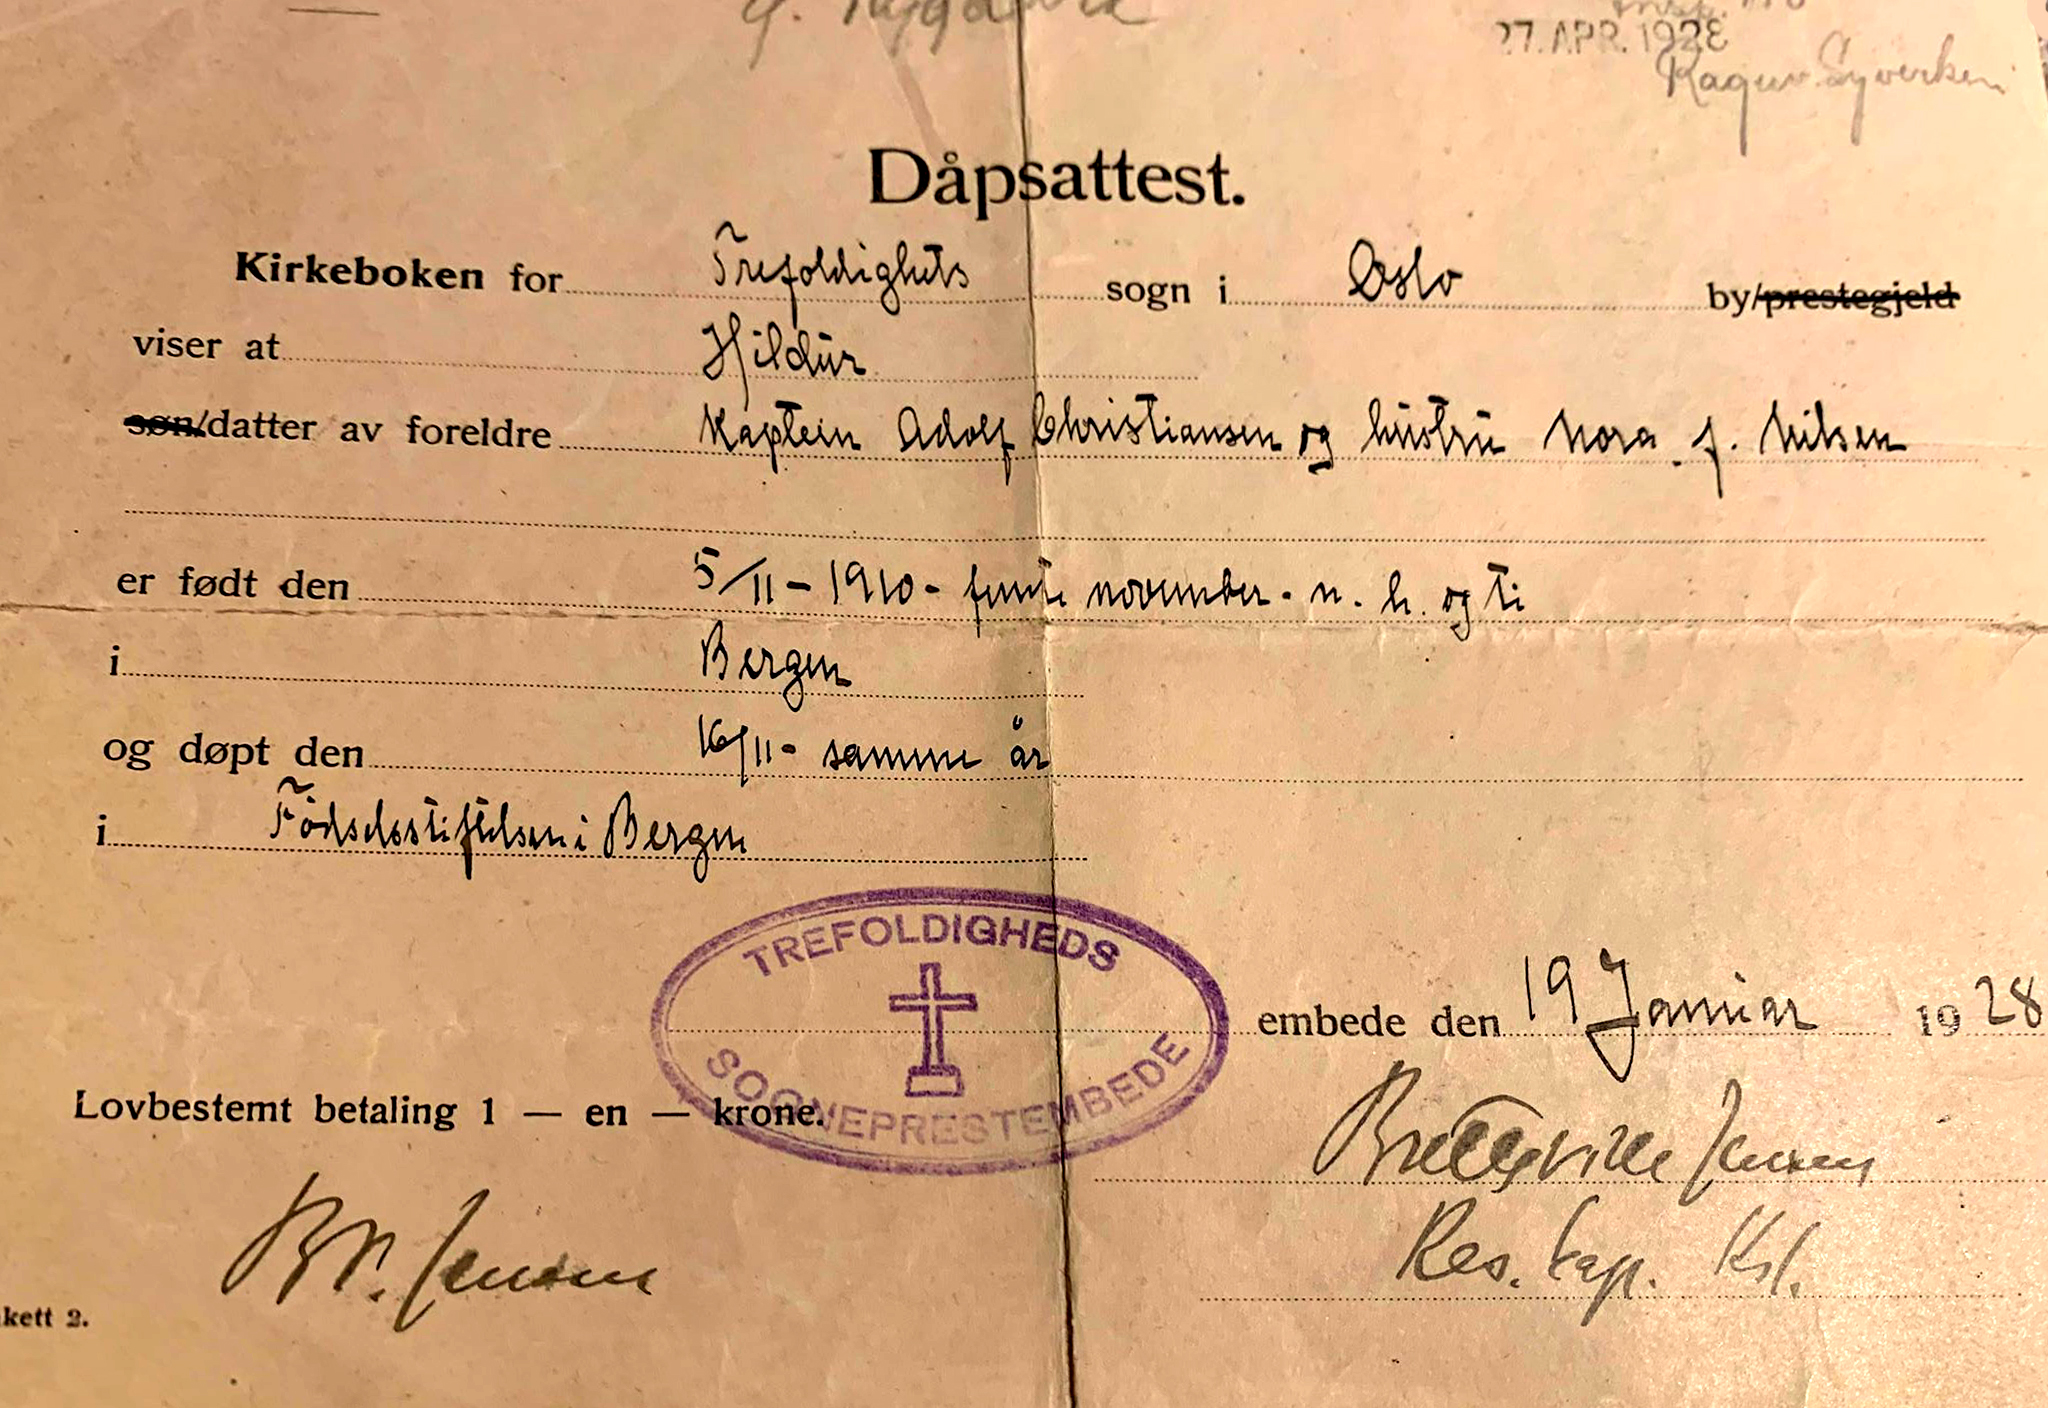 27. APR. 1928
Dåpsattest.
Kirkeboken for Trefoldighets sogn i Oslo by/prestegjeld
viser at Hildur
søn/datter av foreldre Kaptein Adolf Christiansen og hustru Nora f. Nilsen
er født den 5/11 - 1910 - femte november. n. h. og ti
i Bergen
og døpt den 16/11 - samme år
i Fødselsstiftelsen i Bergen
TREFOLDIGHEDS
SOGNEPRESTEMBEDE
embede den 19 Januar 1928
Lovbestemt betaling 1 — en — krone.
Bretteville Jensen
Res. kap. Kst.
B.V. Jensen
kett 2.